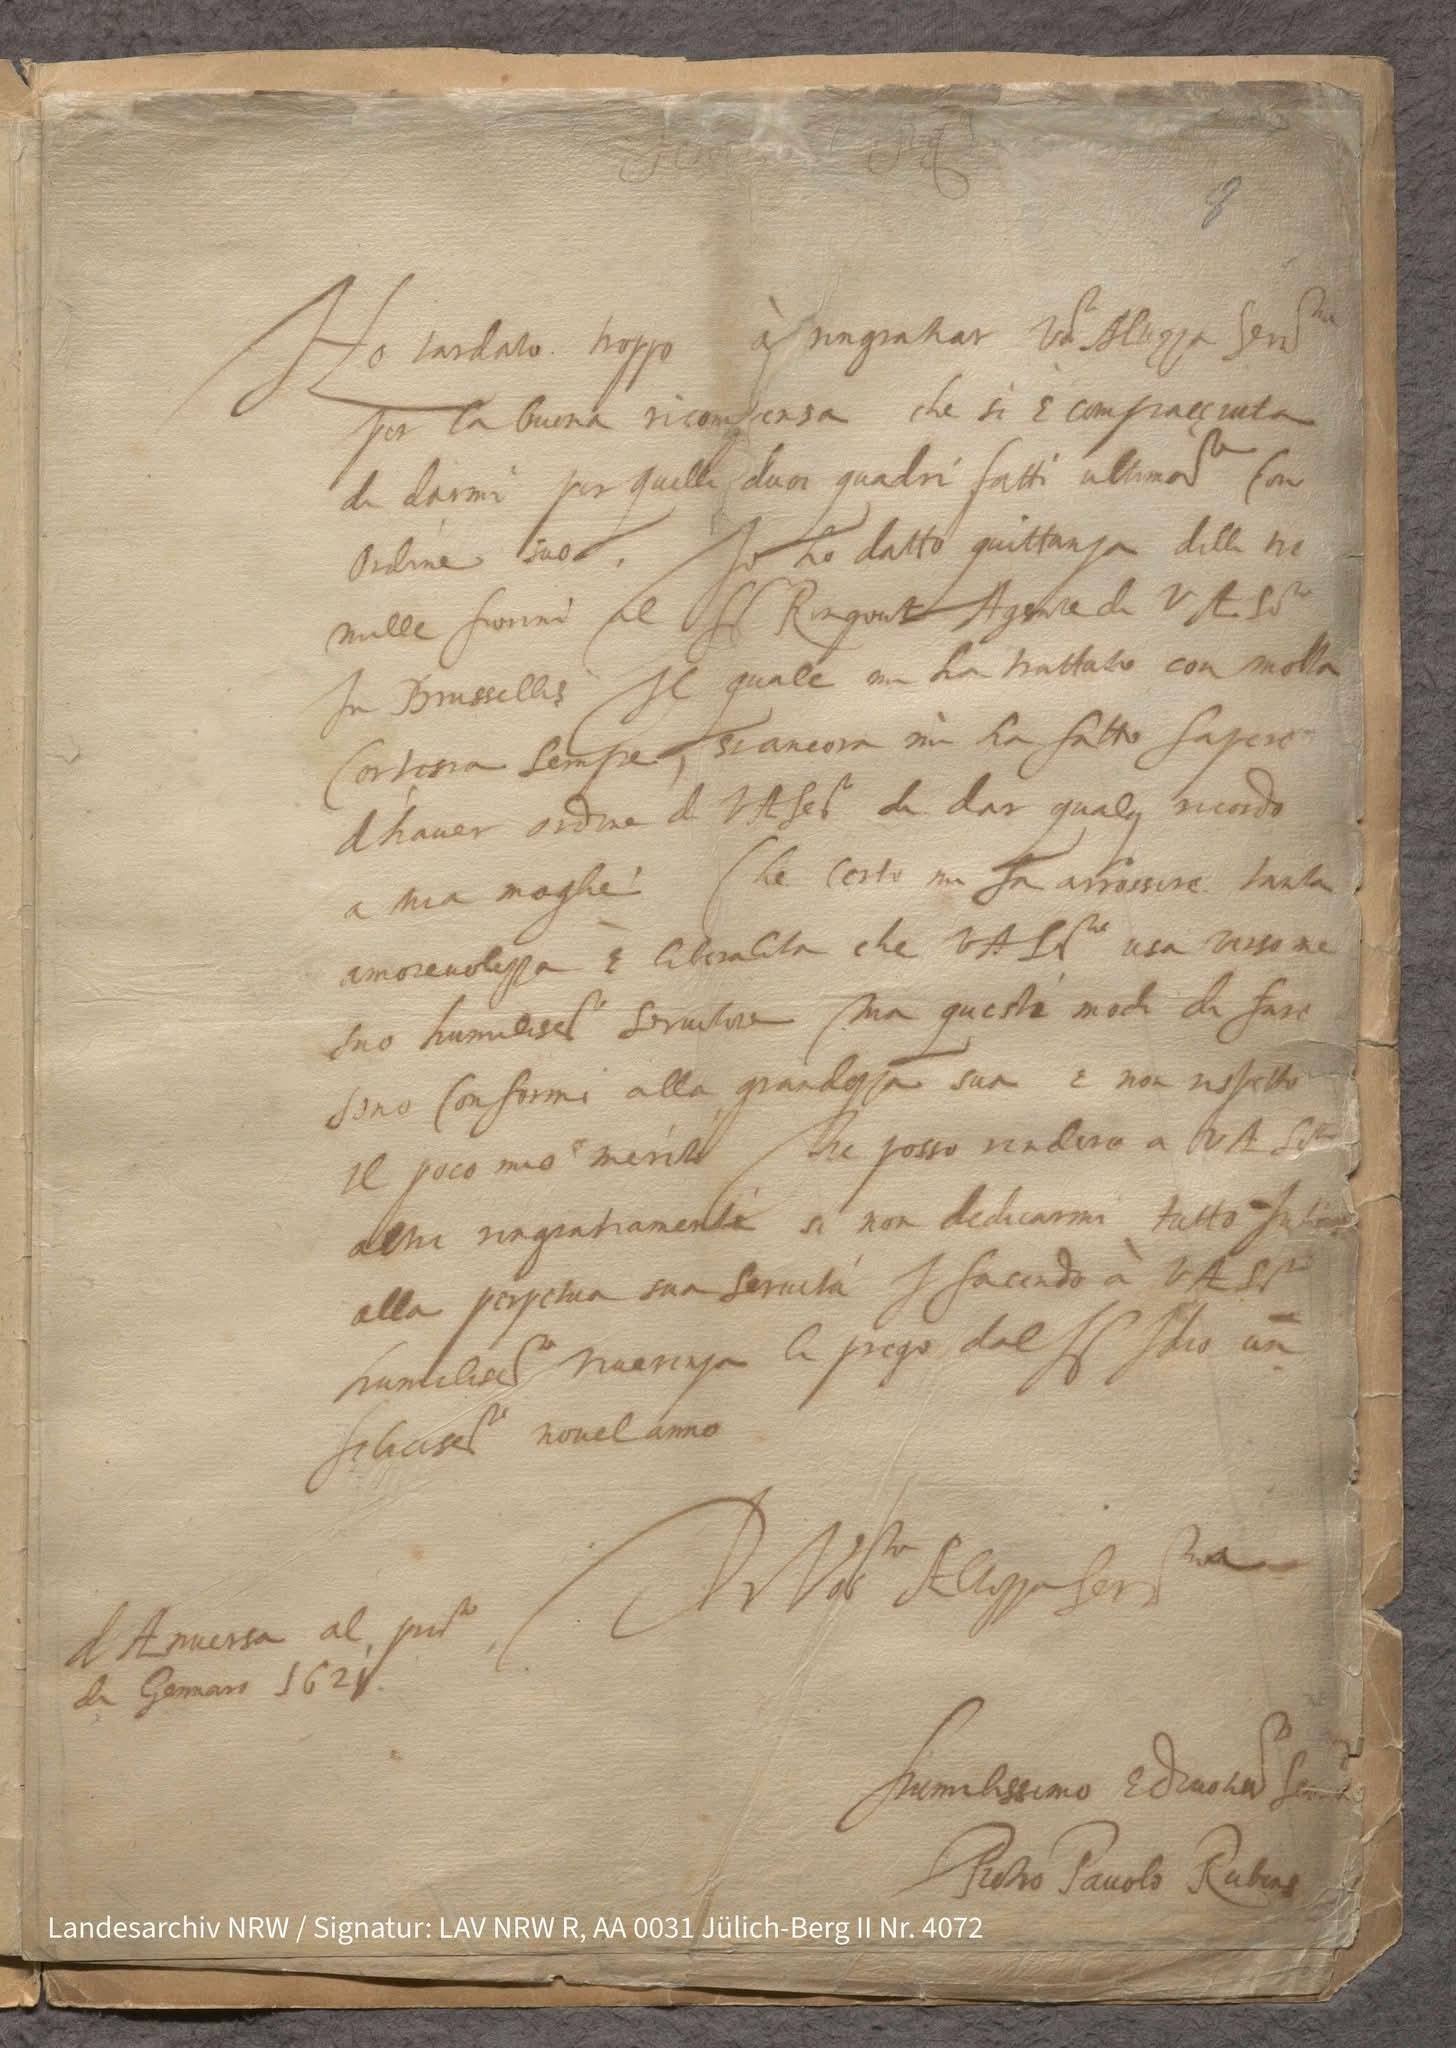 8
Ho tardato troppo à ringratiar Vra Altezza Serma
per la buona ricompensa che si è compiacciuta
di darmi per quelli duoi quadri fatti ultimamte con
ordine suo. Io ho datto quittanza delli tre
mille fiorini al Sr Ringout Agente di V A Sma
In Brussellis Il quale mi ha trattato con molta
Cortesia sempre, si ancora mi ha fatto sapere
d'haver ordine di V A Serma di dar qualq ricordo
a mia moglie Che certo mi fa arrossire tanta
amorevolezza è liberalita che V A Serma usa verso me
suo humilissmo servitore Ma questi modi di fare
sono Conformi alla grandezza sua e non rispetto
Il poco mio merito Ne posso rendere a V A Sma
altri ringratiamenti si non dedicarmi tutto
alla perpetua sua servitù E facendo à V A Sma
humilissma riverenza li prego dal Sr Idio un
felicissmo novel anno
Di Vostra Altezza Serma
d'Anversa al primo
di Gennaro 1621.
Humilissimo E devotissmo
Pietro Pauolo Rubens
Landesarchiv NRW / Signatur: LAV NRW R, AA 0031 Jülich-Berg II Nr. 4072